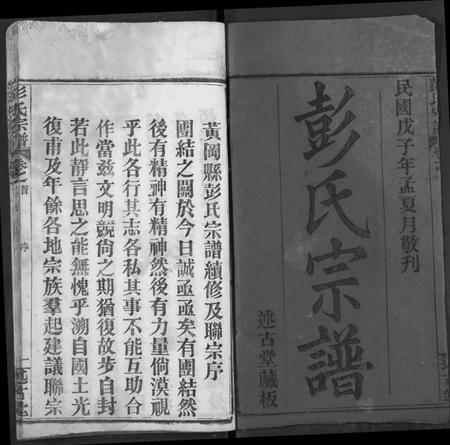 民國戊子年孟夏月敬刊
彭氏宗譜
述古堂藏板
黃岡縣彭氏宗譜續修及聯宗序
團結之關於今日誠亟亟矣有團結然
後有精神有精神然後有力量倘漠視
乎此各行其志各私其事不能互助合
作當茲文明競尙之期猶復故步自封
若此靜言思之能無愧乎溯自國土光
復甫及年餘各地宗族羣起建議聯宗
彭氏宗譜
卷首
序
一